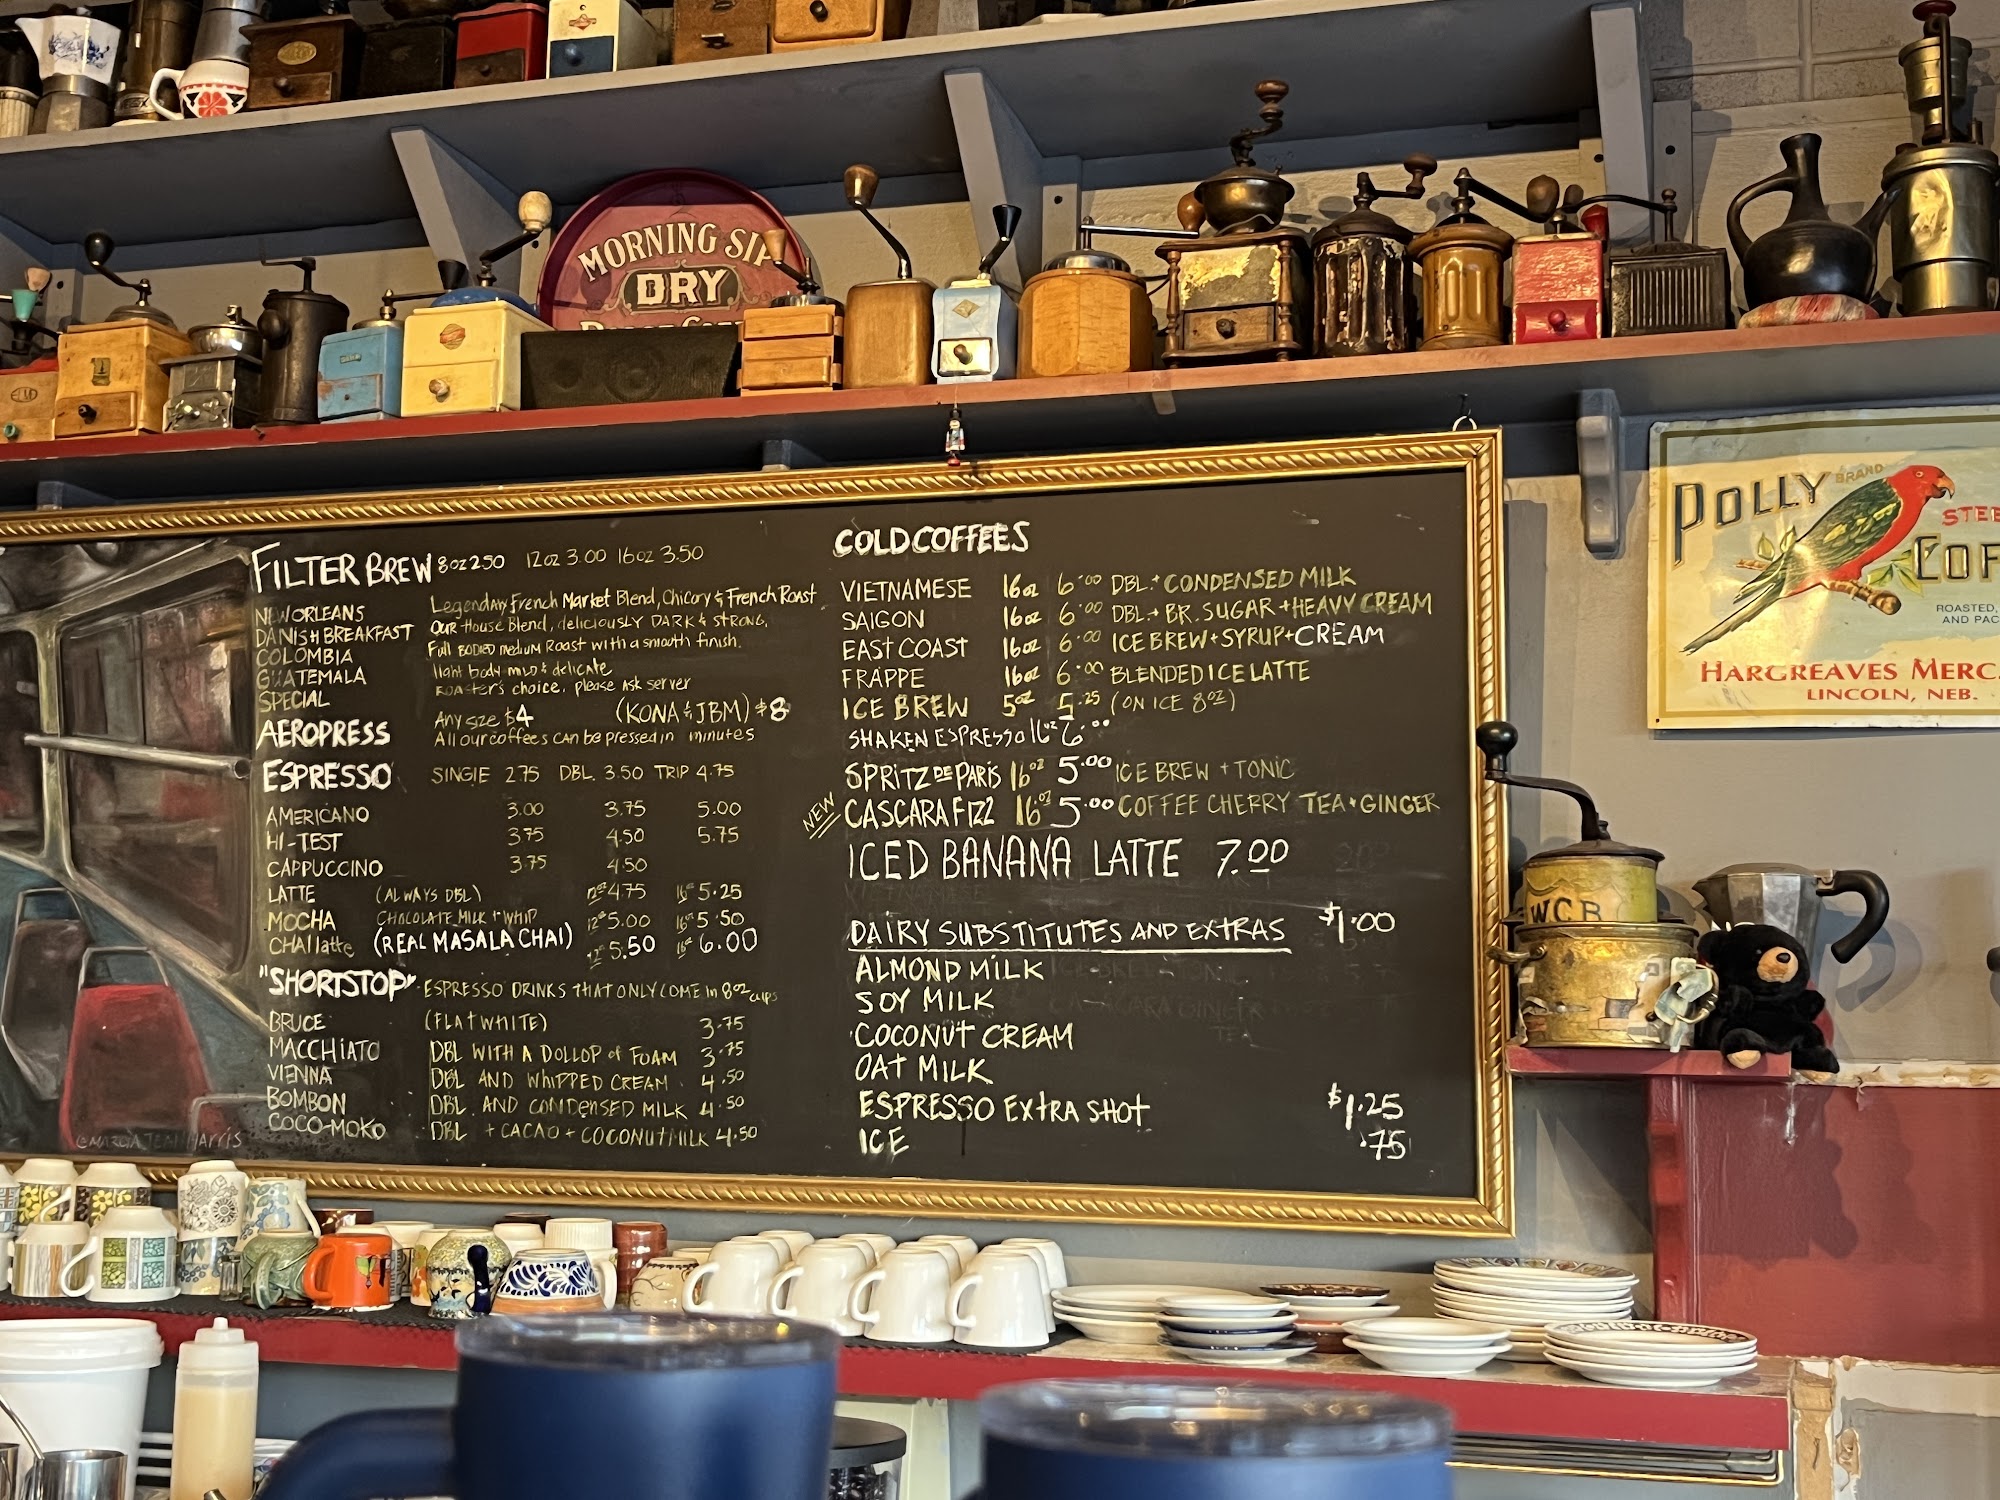 MORNING SIP
DRY
POLLY BRAND
HARGREAVES MERC.
LINCOLN, NEB.
ROASTED,
AND PAC
WCB
FILTER BREW 8oz 2.50 12oz 3.00 16oz 3.50
NEW ORLEANS Legendary French Market Blend, Chicory & French Roast
DANISH BREAKFAST OUR House Blend, deliciously DARK & STRONG.
COLOMBIA Full BODIED medium Roast with a smooth finish.
GUATEMALA light body mild & delicate
SPECIAL ROASTER'S choice, please ASK server
AEROPRESS Any size $4 (KONA & JBM) $8
All our coffees can be pressed in minutes
ESPRESSO SINGlE 2.75 DBL. 3.50 TRIP 4.75
AMERICANO 3.00 3.75 5.00
HI-TEST 3.75 4.50 5.75
CAPPUCCINO 3.75 4.50
LATTE (ALWAYS DBL) 12oz 4.75 16oz 5.25
MOCHA CHOCOLATE MILK + WHIP 12oz 5.00 16oz 5.50
CHAI latte (REAL MASALA CHAI) 12oz 5.50 16oz 6.00
"SHORTSTOP" - ESPRESSO DRINKS THAT ONLY COME In 8oz cups
BRUCE (FLAT WHITE) 3.75
MACCHIATO DBL WITH A DOLLOP of FOAM 3.75
VIENNA DBL AND WHIPPED CREAM 4.50
BOMBON DBL. AND CONDENSED MILK 4.50
COCO-MOKO DBL + CACAO + COCONUT MILK 4.50
COLD COFFEES
VIETNAMESE 16oz 6.00 DBL + CONDENSED MILK
SAIGON 16oz 6.00 DBL + BR. SUGAR + HEAVY CREAM
EAST COAST 16oz 6.00 ICE BREW + SYRUP + CREAM
FRAPPE 16oz 6.00 BLENDED ICE LATTE
ICE BREW 5oz 5.25 (ON ICE 8oz)
SHAKEN ESPRESSO 16oz 6.00
SPRITZ DE PARIS 16oz 5.00 ICE BREW + TONIC
NEW CASCARA FIZZ 16oz 5.00 COFFEE CHERRY TEA + GINGER
ICED BANANA LATTE 7.00
DAIRY SUBSTITUTES AND EXTRAS $1.00
ALMOND MILK
SOY MILK
COCONUT CREAM
OAT MILK
ESPRESSO EXTRA SHOT $1.25
ICE .75